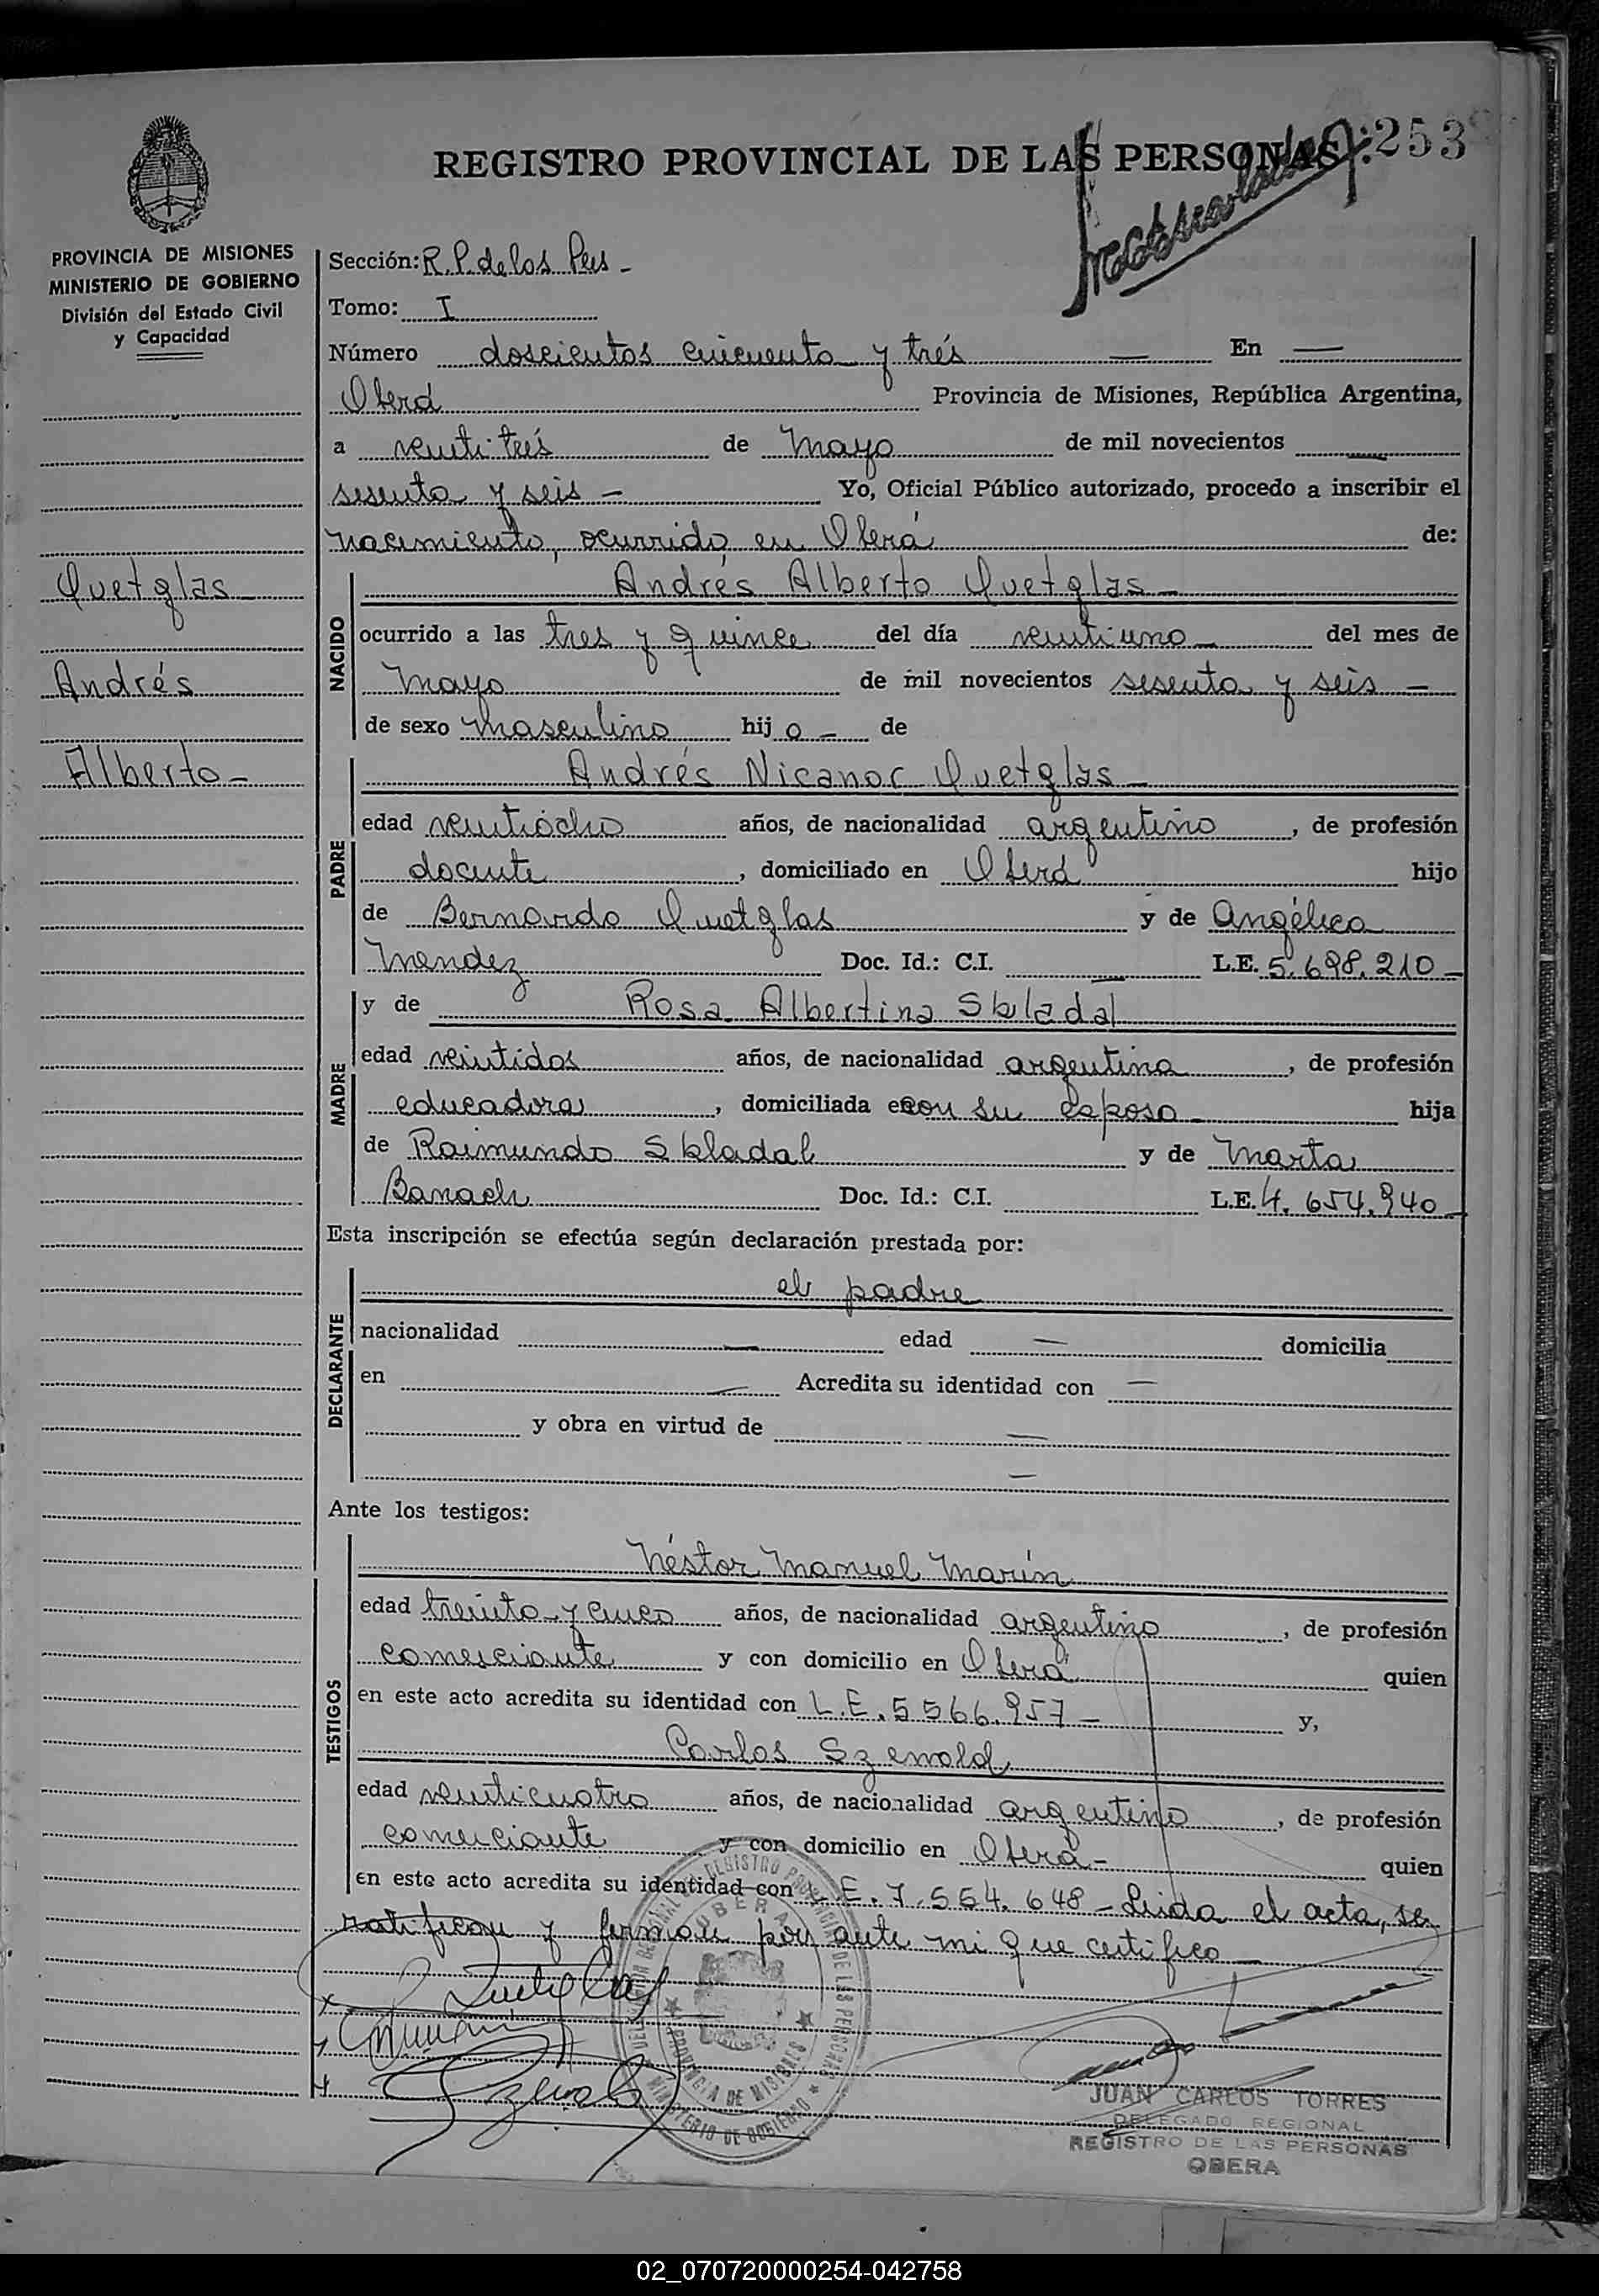 253
REGISTRO PROVINCIAL DE LAS PERSONAS
PROVINCIA DE MISIONES
MINISTERIO DE GOBIERNO
División del Estado Civil
y Capacidad
Quetglas
Andrés
Alberto -
Sección: R. P. de las Pers -
Tomo: I
Número doscientos cincuenta y trés — En —
Oberá Provincia de Misiones, República Argentina,
a veinti trés de Mayo de mil novecientos —
sesenta y seis - Yo, Oficial Público autorizado, procedo a inscribir el
nacimiento, ocurrido en Oberá de:
NACIDO
Andrés Alberto Quetglas -
ocurrido a las tres y quince del día veintiuno - del mes de
Mayo de mil novecientos sesenta y seis -
de sexo masculino hij o - de
PADRE
Andrés Nicanor Quetglas -
edad veintiocho años, de nacionalidad argentino, de profesión
docente, domiciliado en Oberá hijo
de Bernardo Quetglas y de Angélica
Mendez Doc. Id.: C.I. — L.E. 5.698.210 -
MADRE
y de Rosa Albertina Skladal
edad veintidos años, de nacionalidad argentina, de profesión
educadora, domiciliada con su esposo hija
de Raimundo Skladal y de Marta
Banach Doc. Id.: C.I. L.E. 4.654.940 -
Esta inscripción se efectúa según declaración prestada por:
DECLARANTE
el padre
nacionalidad — edad — domicilia
en — Acredita su identidad con —
y obra en virtud de —
—
Ante los testigos:
TESTIGOS
Néstor Manuel Marín
edad treinta y cinco años, de nacionalidad argentino, de profesión
comerciante y con domicilio en Oberá quien
en este acto acredita su identidad con L.E. 5566.957 - y,
Carlos Szewald
edad veinticuatro años, de nacionalidad argentino, de profesión
comerciante y con domicilio en Oberá - quien
en este acto acredita su identidad con L.E. 7.554.648 - Leida el acta, se
ratifican y firman por ante mi que certifico
Quetglas
REGISTRO PROVINCIAL DE LAS PERSONAS
OBERA
PROVINCIA DE MISIONES
MINISTERIO DE GOBIERNO
JUAN CARLOS TORRES
DELEGADO REGIONAL
REGISTRO DE LAS PERSONAS
OBERA
02_070720000254-042758